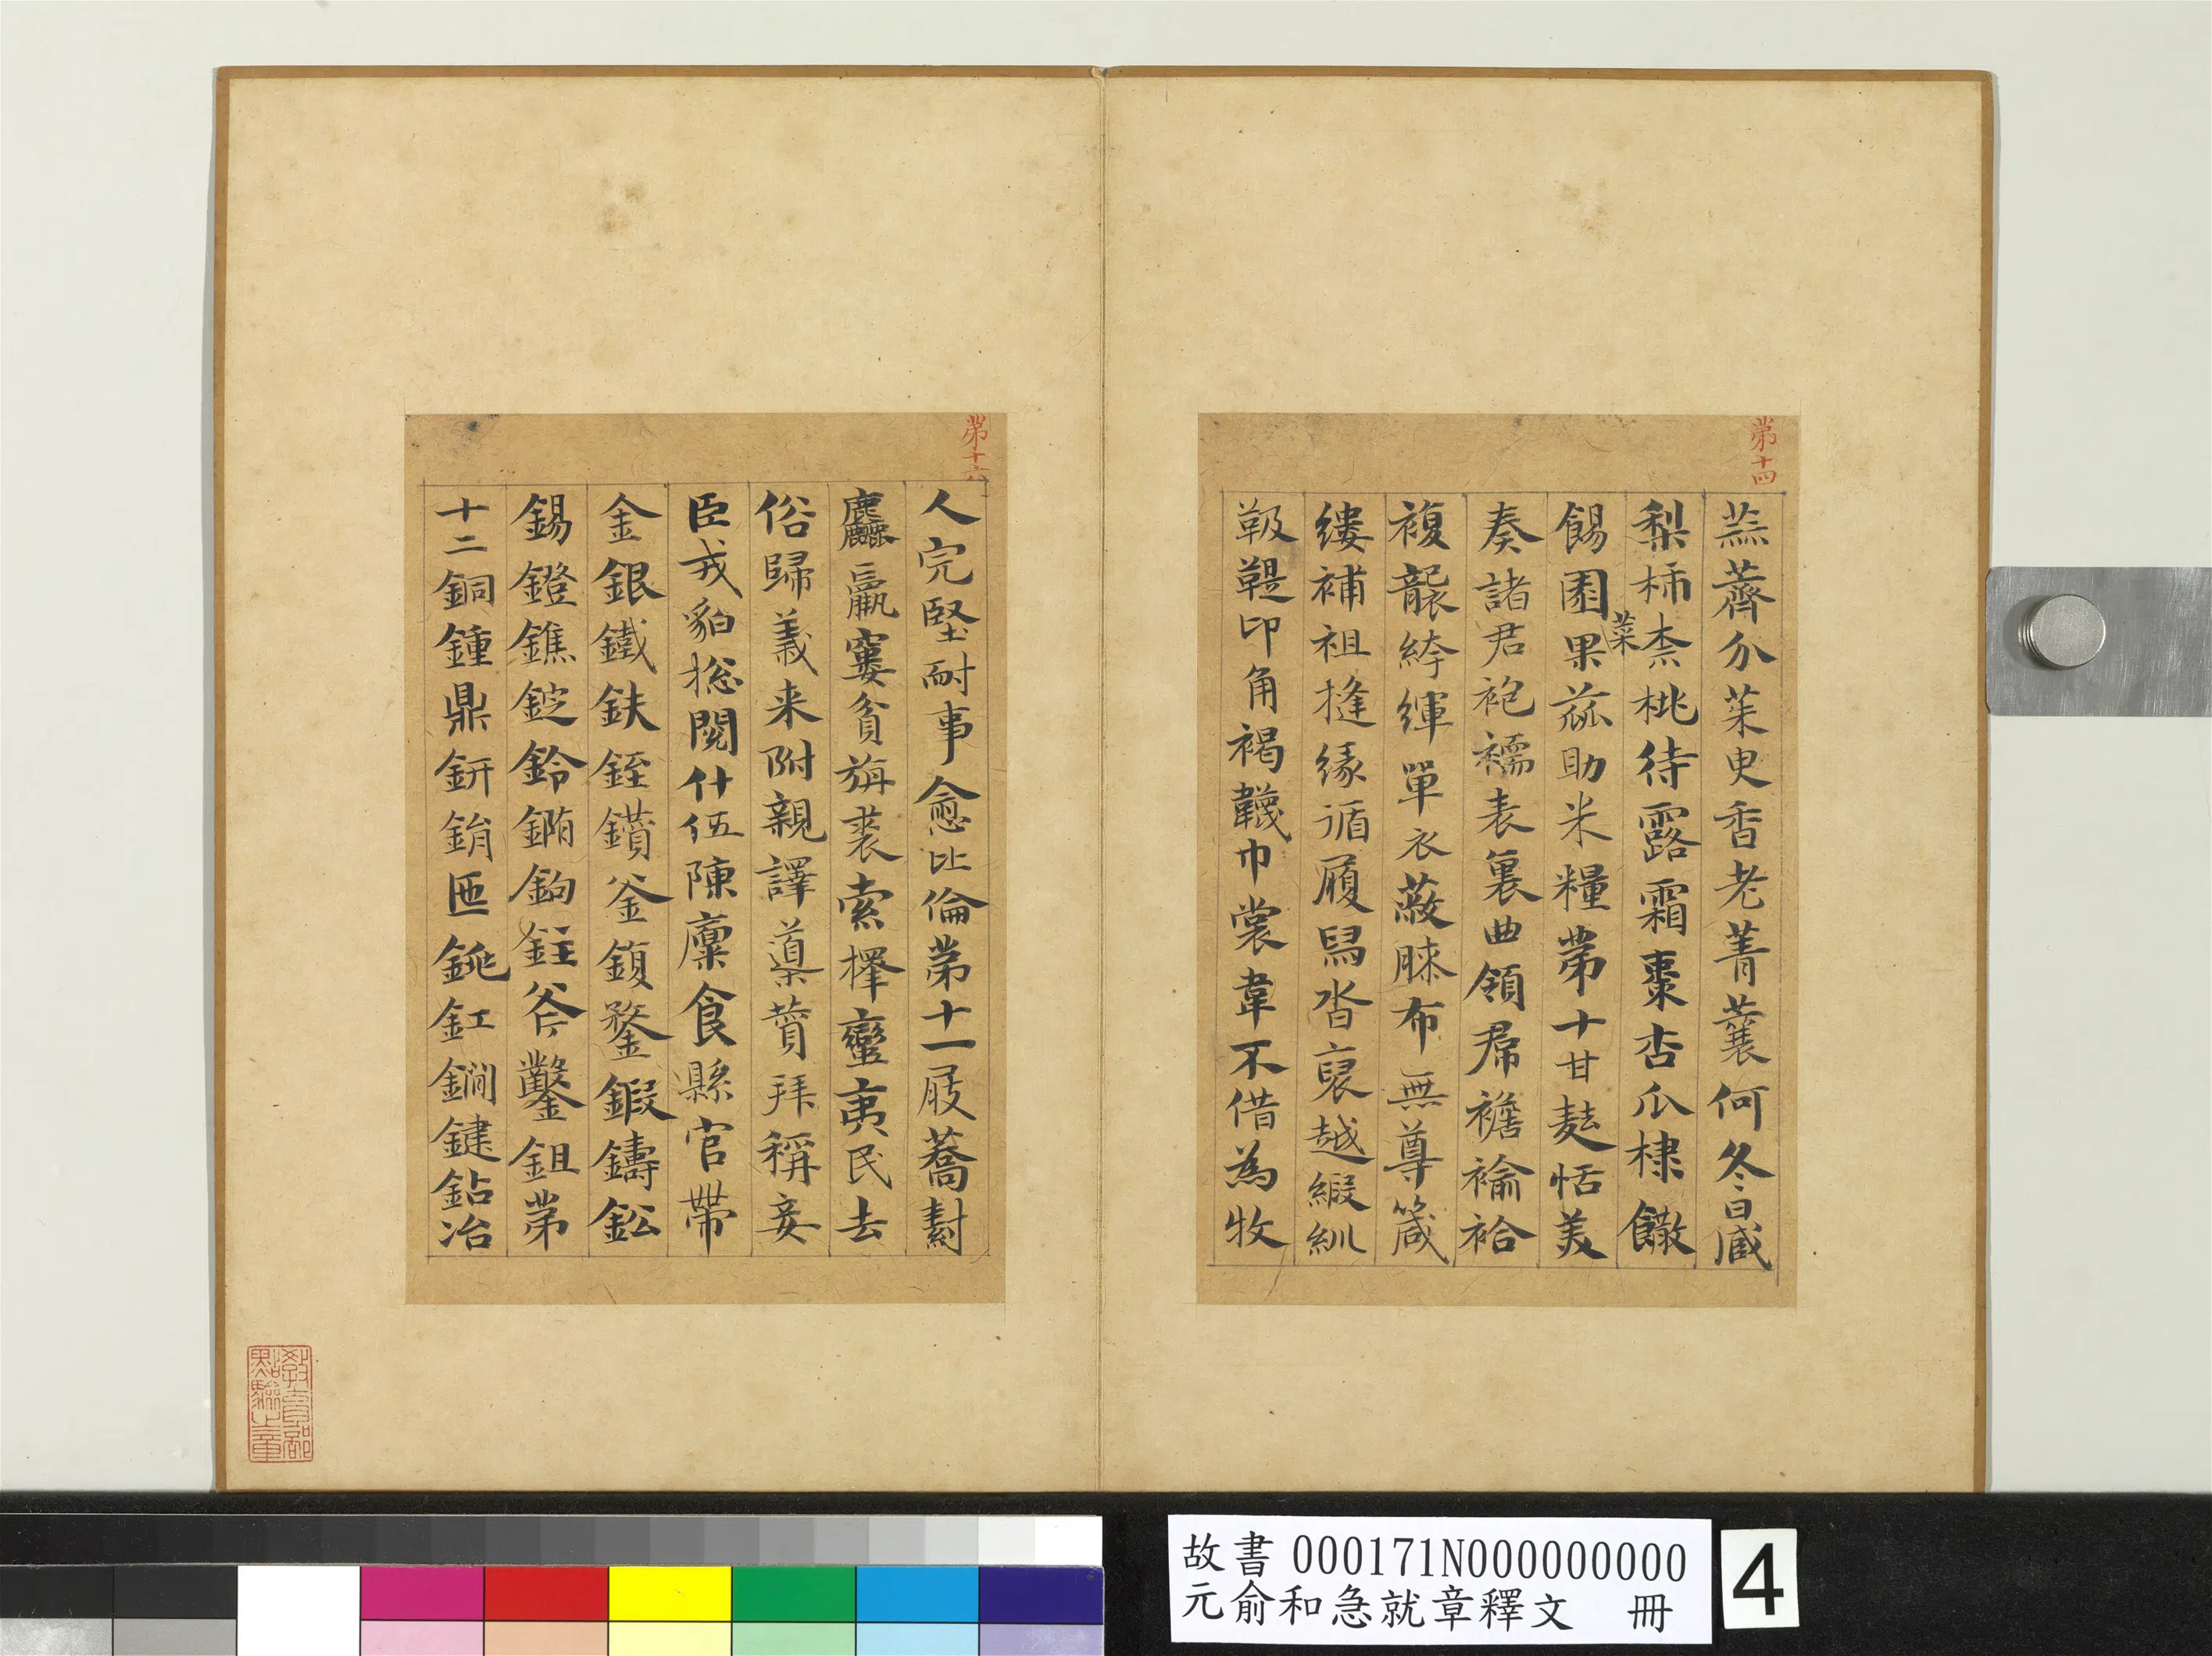 第十四
蕪薺介茱臾香老菁蘘何冬日臧
梨柿柰桃待露霜棗杏瓜棣饊
餳園菜果蓏助米糧第十甘麩恬美
奏諸君袍襦表裏曲領帬襜褕袷
複襲絝緷單衣蔽膝布無尊箴
縷補袒摓緣循履舄沓裒越緞紃
靸鞮卬角褐韈巾裳韋不借為牧
第十六
人完堅耐事愈比倫第十一屐蕎
麤羸窶貧旃裘索擇蠻夷民去
俗歸義来附親譯導贊拜稱妾
臣戎貊捴閱什伍陳稟食縣官帶
金銀鐵鈇銍鑽釜鍑鍪鍛鑄鈆
錫鐙鐎錠鈴鉤鉒斧鑿鉏第
十二銅鍾鼎鈃鋗匜銚釭鐧鍵鉆冶
教育部點驗之章
故書 000171N000000000
元俞和急就章釋文 冊
4